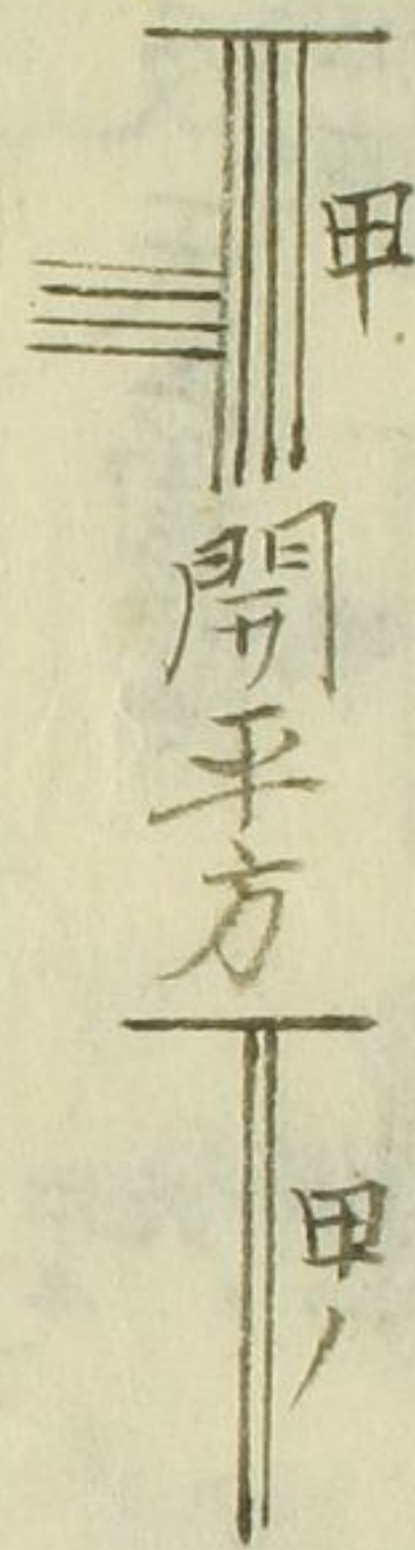 甲
開平方
甲ノ